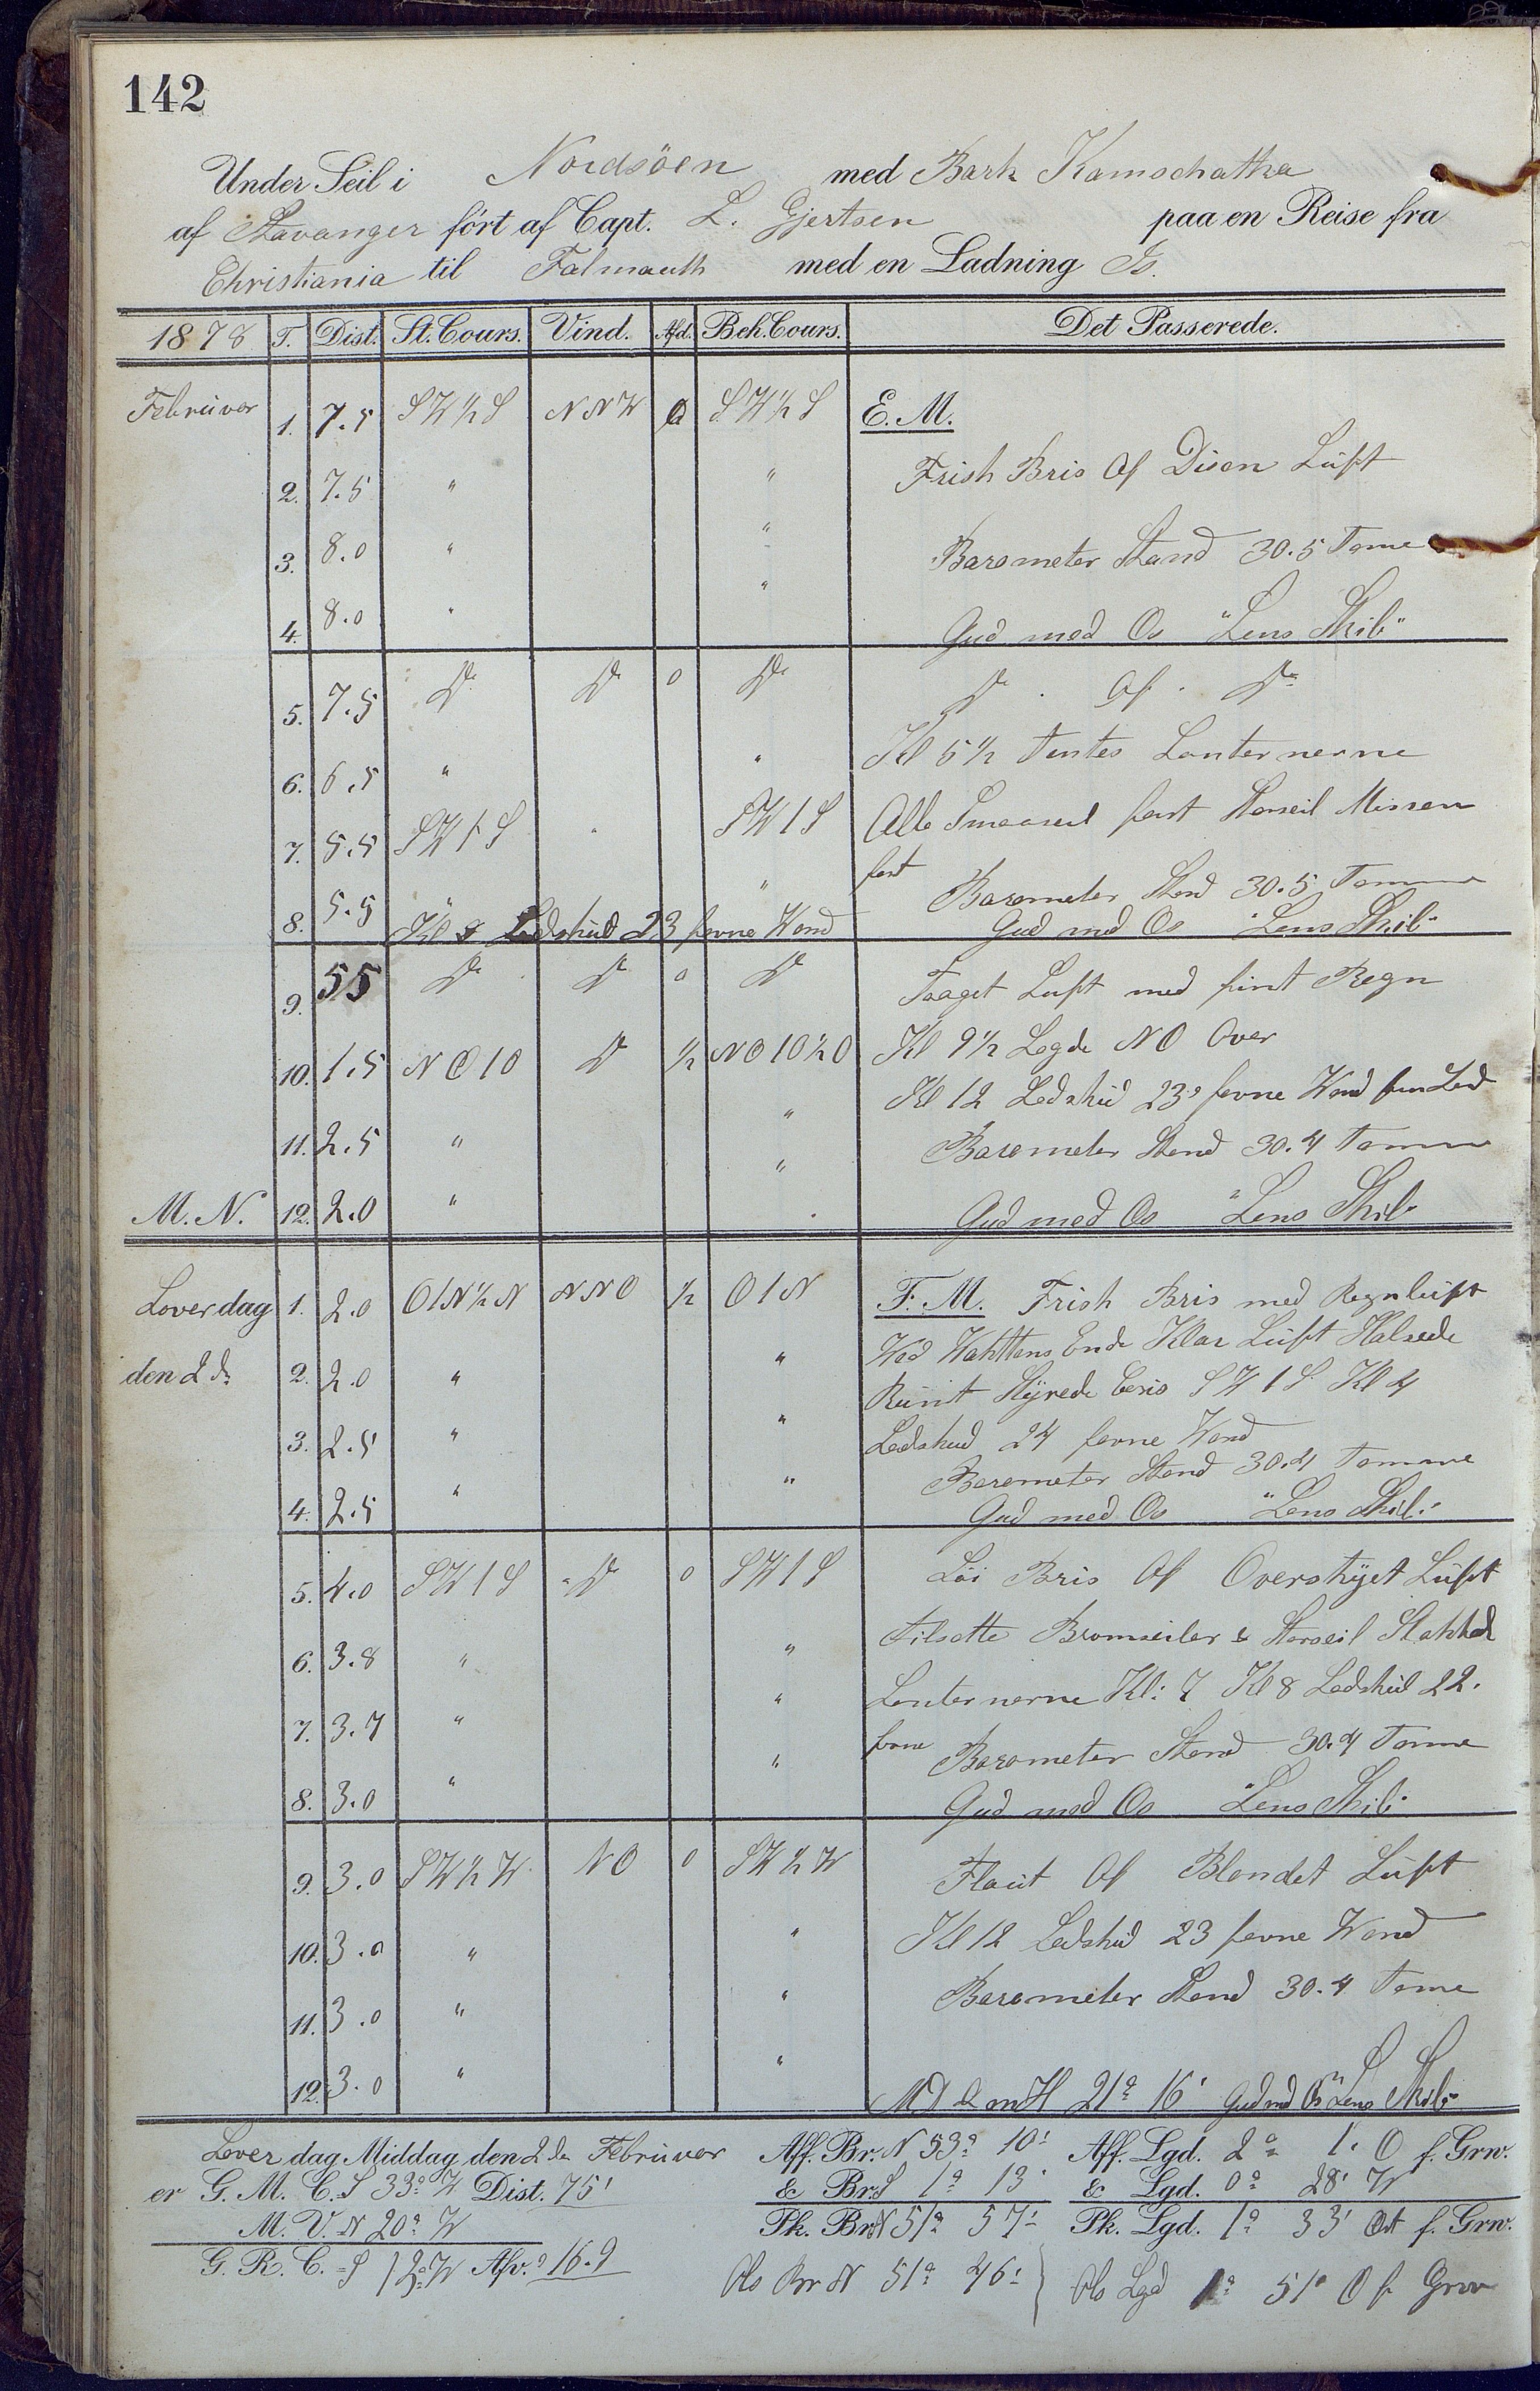 142
Under Seil i Nordsöen med Bark Kamschatka
af Stavanger ført af Capt. L. Gjertsen paa en Reise fra
Christiania til Falmauth med en Ladning Is.
1878 T. Dist. St. Cours. Vind. Afd. Beh. Cours. Det Passerede.
Februar 1. 7.5 SW½S NNW 0 SW½S E. M.
2. 7.5 " " Frish Bris Af Disen Luft
3. 8.0 " " Barometer Stand 30.5 Tome
4. 8.0 " " Gud med Os "Lens Skib"
5. 7.5 Do Do 0 Do Do . Af . Do
6. 6.5 " " Kl 5½ Tentes Lanternerne
7. 5.5 SW1S " SW1S Alle Smaaseil fast Storseil Missen
fast
8. 5.5 " " Barometer Stand 30.5 Tomme
Kl 8 Lodskud 23 favne Wand Gud med Os "Lens Skib"
9. 55 Do Do 0 Do Taaget Luft med fint Regn
10. 1.5 NO10 Do ½ NO10½O Kl 9½ Lagde NO Over
Kl 12 Lodskud 23 favne Wand
11. 2.5 " " Barometer Stand 30.4 Tomme
M. N. 12. 2.0 " " Gud med Os "Lens Skib"
Loverdag 1. 2.0 O1N½N NNO ½ O1N F. M. Frish Bris med Regnluft
den 2de 2. 2.0 " " Wed Wakttens Ende Klar Luft Halsede
Runt Styrede SW1S Kl 4
3. 2.5 " " Lodskud 24 favne Wand
Barometer Stand 30.4 Tomme
4. 2.5 " " Gud med Os "Lens Skib"
5. 4.0 SW1S Do 0 SW1S Löi Bris Af Overskyet Luft
6. 3.8 " " Tilsatte Bramseiler & Storseil Slukked
7. 3.7 " " Lanternerne Kl: 7 Kl 8 Lodskud 22.
favne Barometer Stand 30.4 Tomme
8. 3.0 " " Gud med Os "Lens Skib"
9. 3.0 SW½W NO 0 SW½W Flaut Af Blandet Luft
10. 3.0 " " Kl 12 Lodskud 23 favne Wand
11. 3.0 " " Barometer Stand 30.4 Tome
12. 3.0 " " 21° 16' Gud med Os "Lens Skib"
Loverdag Middag den 2de Februar Aff. Br. N 53° 10' Aff. Lgd. 2° 1' O f. Grw.
er G. M. C. S 33° W Dist. 75' & Br. S 1° 13' & Lgd. 0° 28' W
M. V. N 20° W Pk. Br. N 51° 57' Pk. Lgd. 1° 33' Ost f. Grw.
G. R. C. S 12° W Afv. 16.9 Obs Br N 51° 46' Obs Lgd 1° 51' O f. Grw